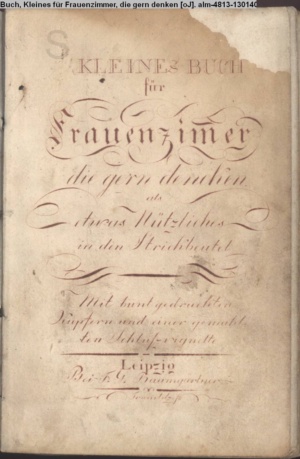 Buch, Kleines für Frauenzimmer, die gern denken [oJ]. alm-4813-130140
KLEINES BUCH
für
Frauenzim̄er
die gern dencken
als
etwas Nützliches
in den Strickbeutel
Mit bunt gedruckten
Kupfern und einer gemahl
ten Schlußvignette
Leipzig
Bei F. G. Baumgärtner